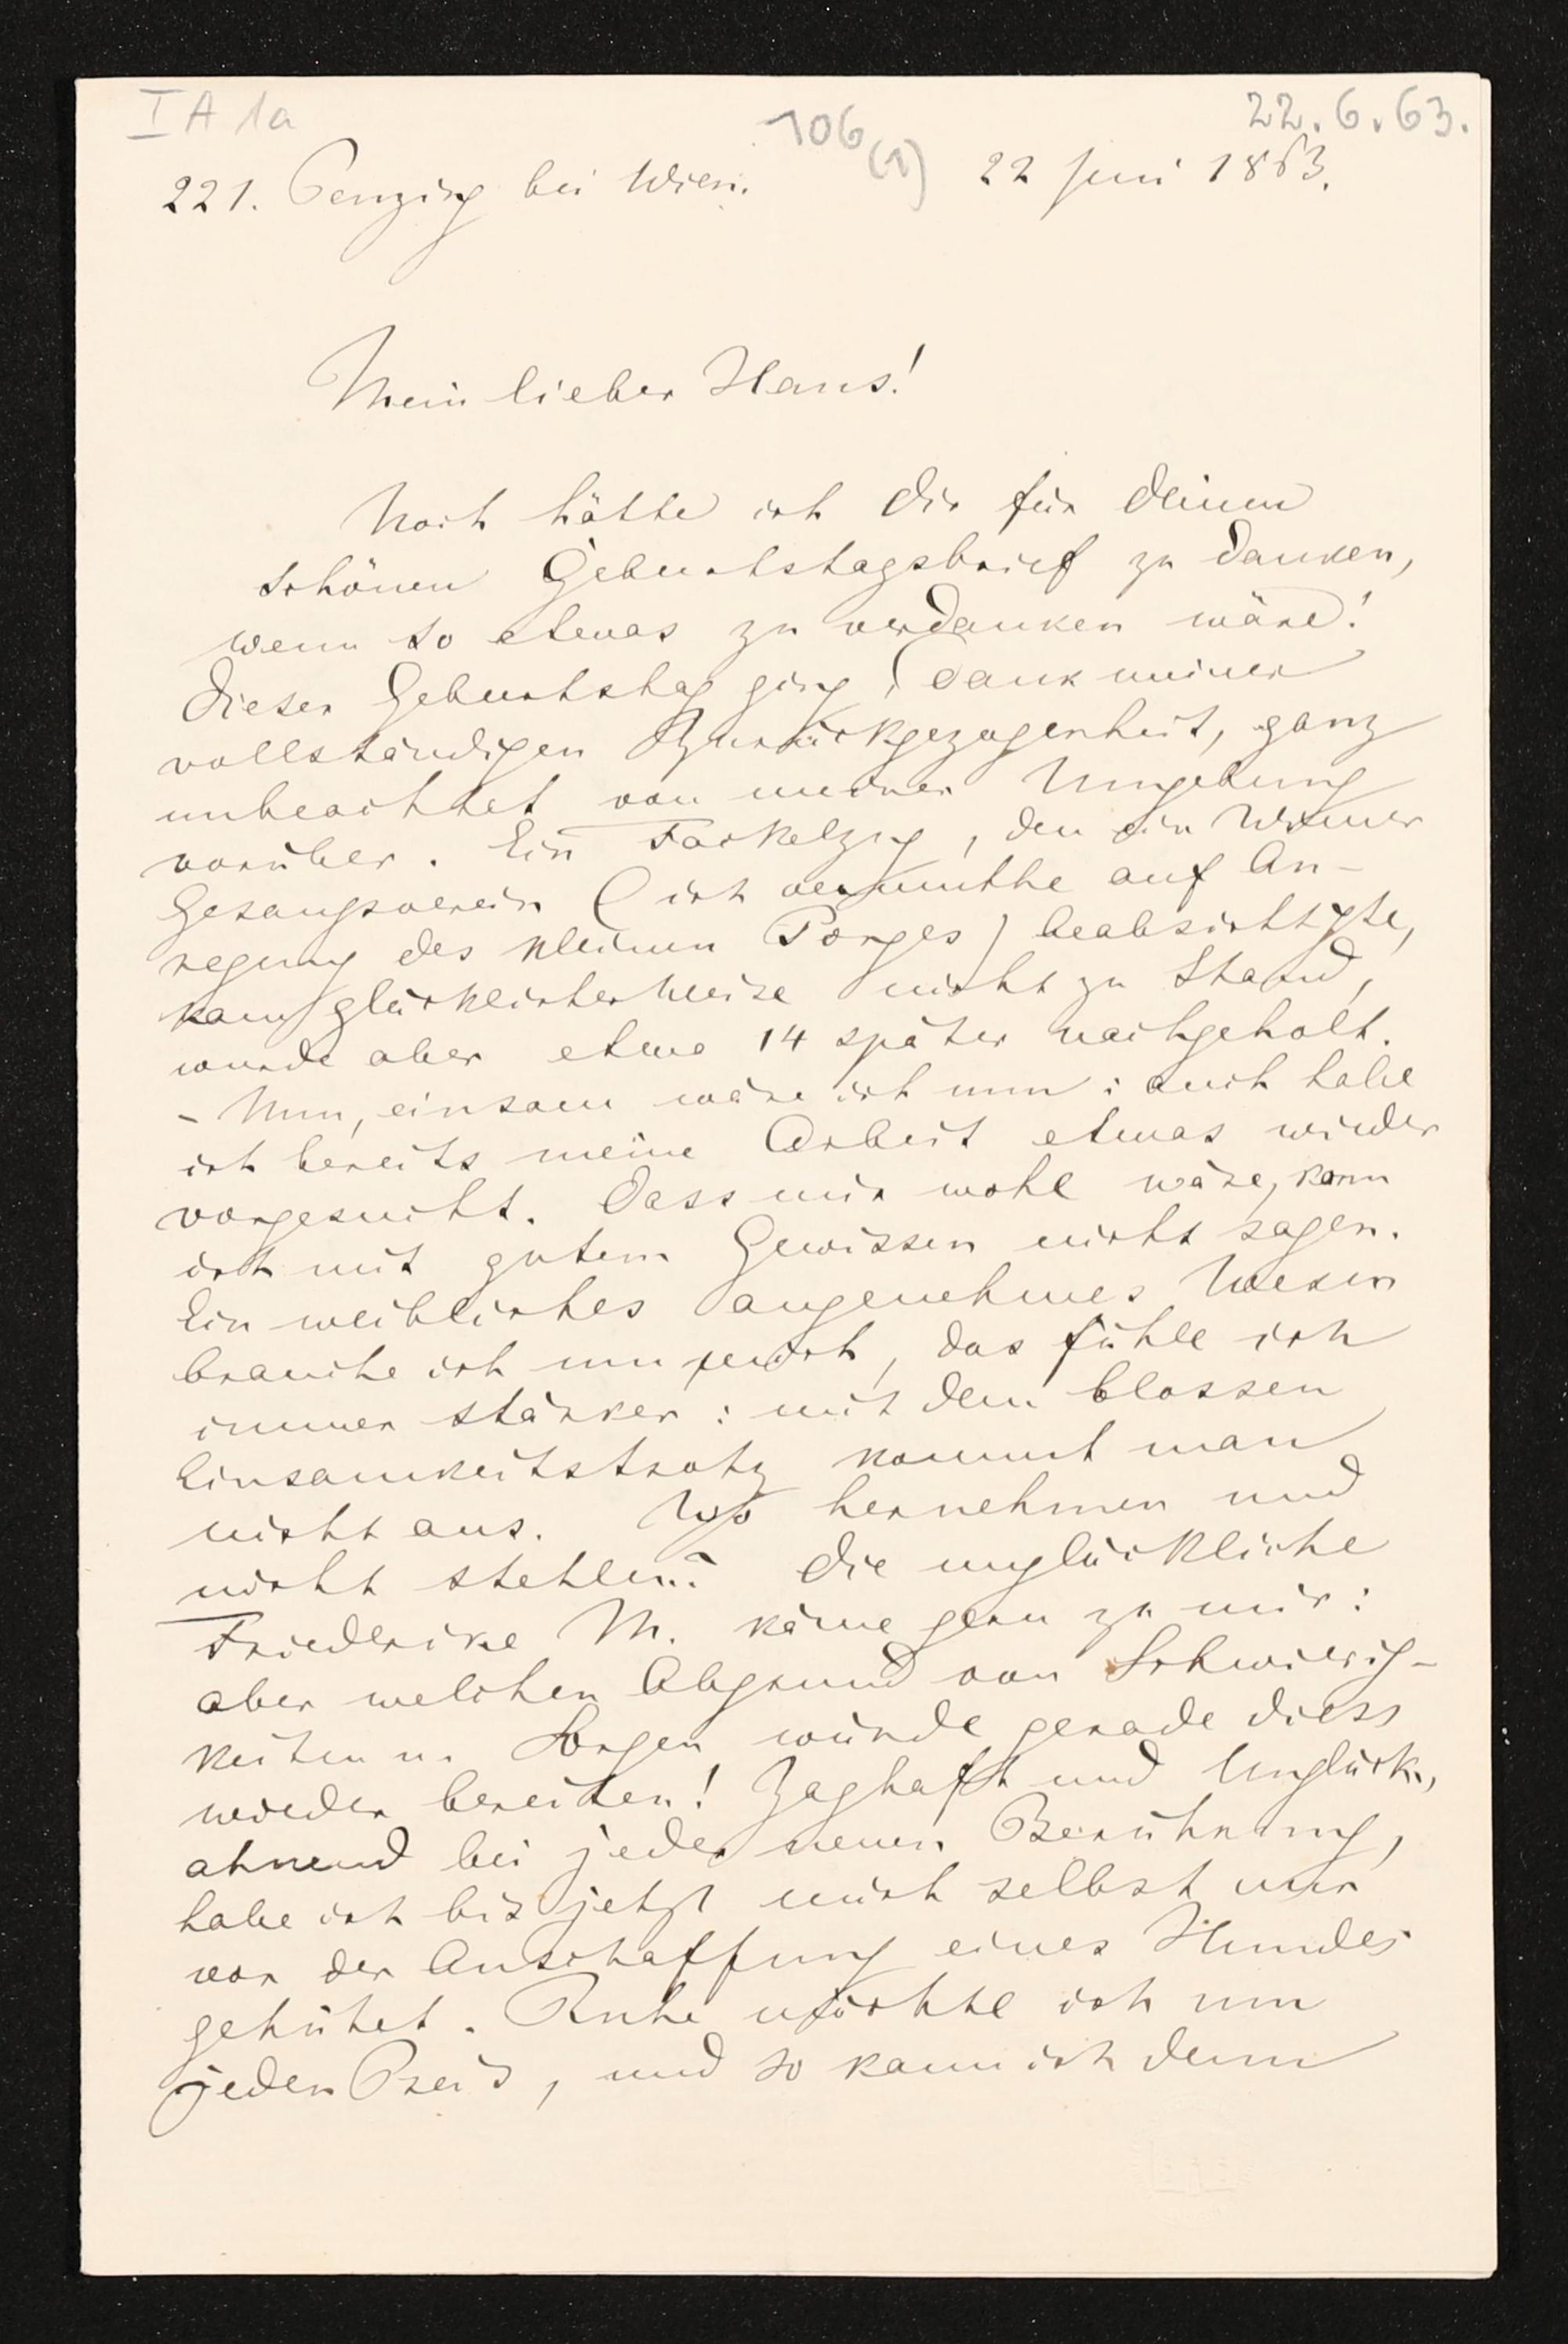 I A 1a
106 (1)
22.6.63.
221. Penzing bei Wien.
22 Juni 1863.
Mein lieber Hans!
Noch hätte ich Dir für Deinen
schönen Geburtstagsbrief zu danken,
wenn so etwas zu verdanken wäre!
Dieser Geburtstag ging, Dank meiner
vollständigen Zurückgezogenheit, ganz
unbeachtet von meiner Umgebung
vorüber. Ein Fackelzug, den ein Wiener
Gesangsverein (ich vermuthe auf An-
regung des kleinen Porges) beabsichtigte,
kam glücklicherweise nicht zu Stand,
wurde aber etwa 14 später nachgeholt.
- Nun, einsam wäre ich nun: auch habe
ich bereits meine Arbeit etwas wieder
vorgesucht. Dass mir wohl wäre, kann
ich mit gutem Gewissen nicht sagen.
Ein weibliches angenehmes Wesen
brauche ich um mich, das fühle ich
immer stärker: mit dem blossen
Einsamkeitstrotz kommt man
nicht aus. Wo hernehmen und
nicht stehlen? Die unglückliche
Friederike M. käme gern zu mir:
aber welchen Abgrund von Schwierig-
keiten u. Sorgen würde gerade diess
wieder bereiten! Zaghaft und Unglück,
ahnend bei jeder neuen Berührung,
habe ich bis jetzt mich selbst nur
vor der Anschaffung eines Hundes
gehütet. Ruhe möchte ich um
jeden Preis, und so kann ich denn